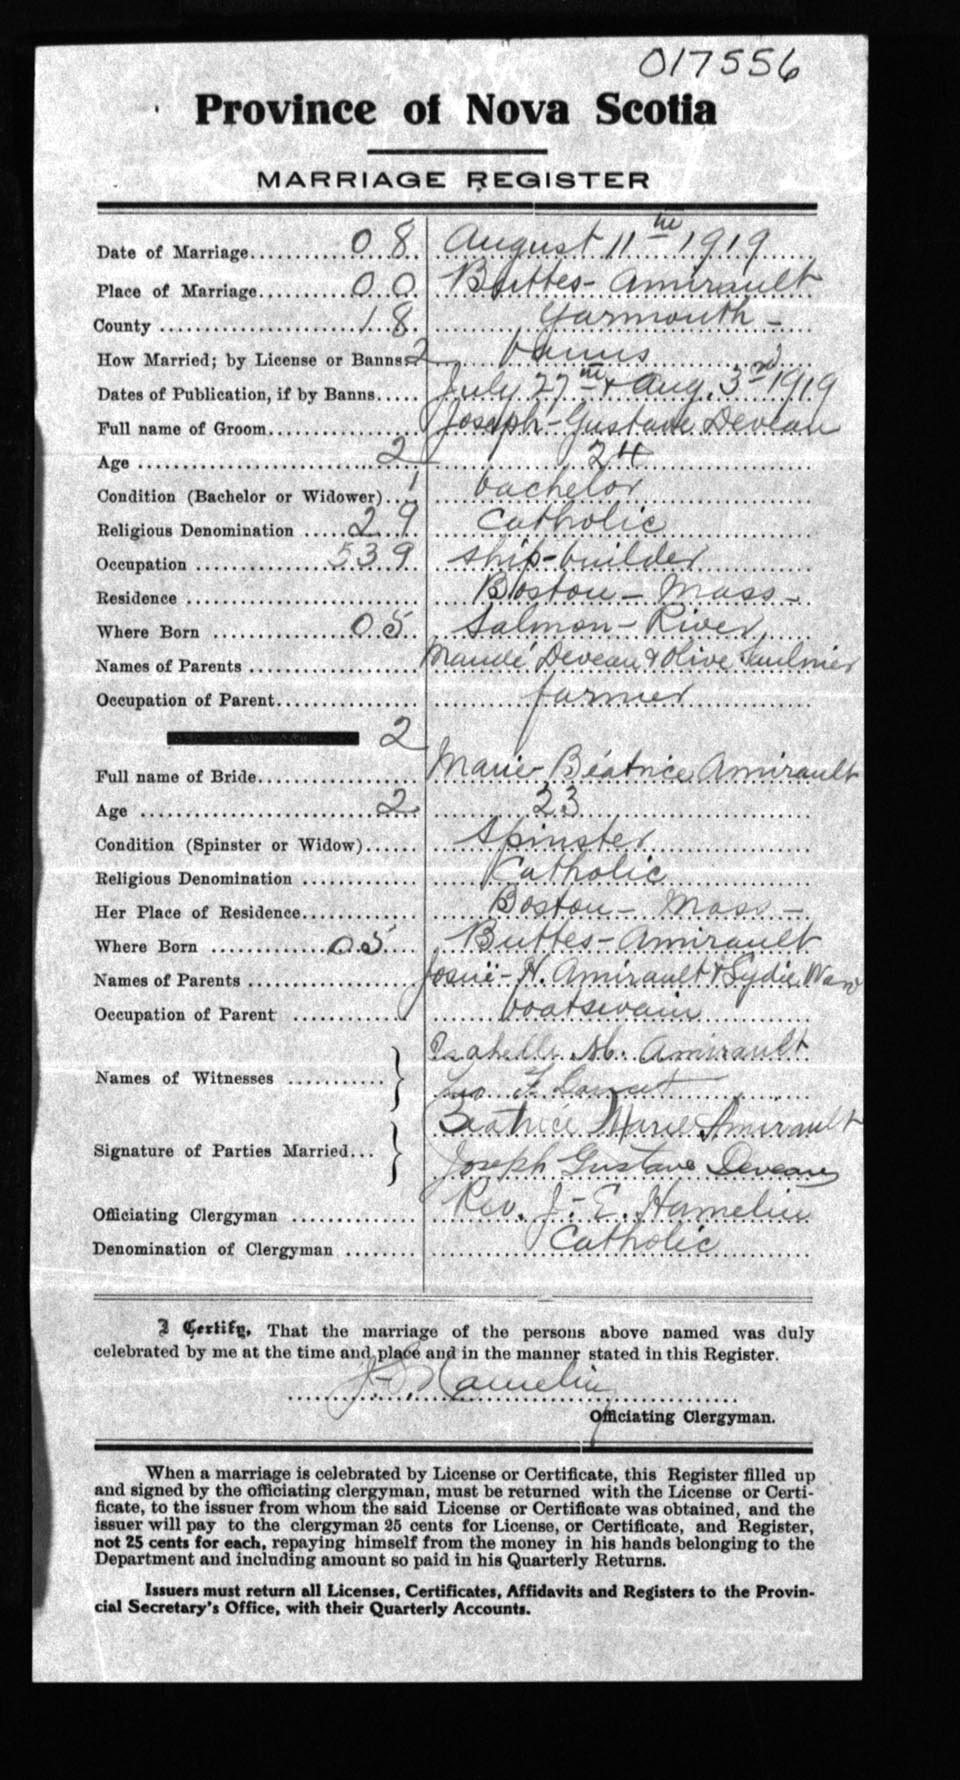 017556
Province of Nova Scotia
MARRIAGE REGISTER
Date of Marriage 08 August 11th 1919
Place of Marriage 00 Buttes-Amirault
County 18 Yarmouth -
How Married; by License or Banns 2 banns
Dates of Publication, if by Banns July 27th & Aug. 3rd 1919
Full name of Groom Joseph-Gustave Deveau
Age 2 24
Condition (Bachelor or Widower) 1 bachelor
Religious Denomination 29 Catholic
Occupation 539 ship-builder
Residence Boston - Mass -
Where Born 05 Salmon-River
Names of Parents Mandé Deveau & Olive Saulnier
Occupation of Parent farmer
2
Full name of Bride Marie Béatrice Amirault
Age 2 23
Condition (Spinster or Widow) Spinster
Religious Denomination Catholic
Her Place of Residence Boston - Mass -
Where Born 05 Buttes-Amirault
Names of Parents Josué-H. Amirault & Lydie
Occupation of Parent boatswain
Names of Witnesses Isabelle M. Amirault
Leo F. Doucet
Signature of Parties Married Beatrice Marie Amirault
Joseph Gustave Deveau
Officiating Clergyman Rev. J.-E. Hamelin
Denomination of Clergyman Catholic
I Certify, That the marriage of the persons above named was duly
celebrated by me at the time and place and in the manner stated in this Register.
J-E. Hamelin
Officiating Clergyman.
When a marriage is celebrated by License or Certificate, this Register filled up
and signed by the officiating clergyman, must be returned with the License or Certi-
ficate, to the issuer from whom the said License or Certificate was obtained, and the
issuer will pay to the clergyman 25 cents for License, or Certificate, and Register,
not 25 cents for each, repaying himself from the money in his hands belonging to the
Department and including amount so paid in his Quarterly Returns.
Issuers must return all Licenses, Certificates, Affidavits and Registers to the Provin-
cial Secretary's Office, with their Quarterly Accounts.